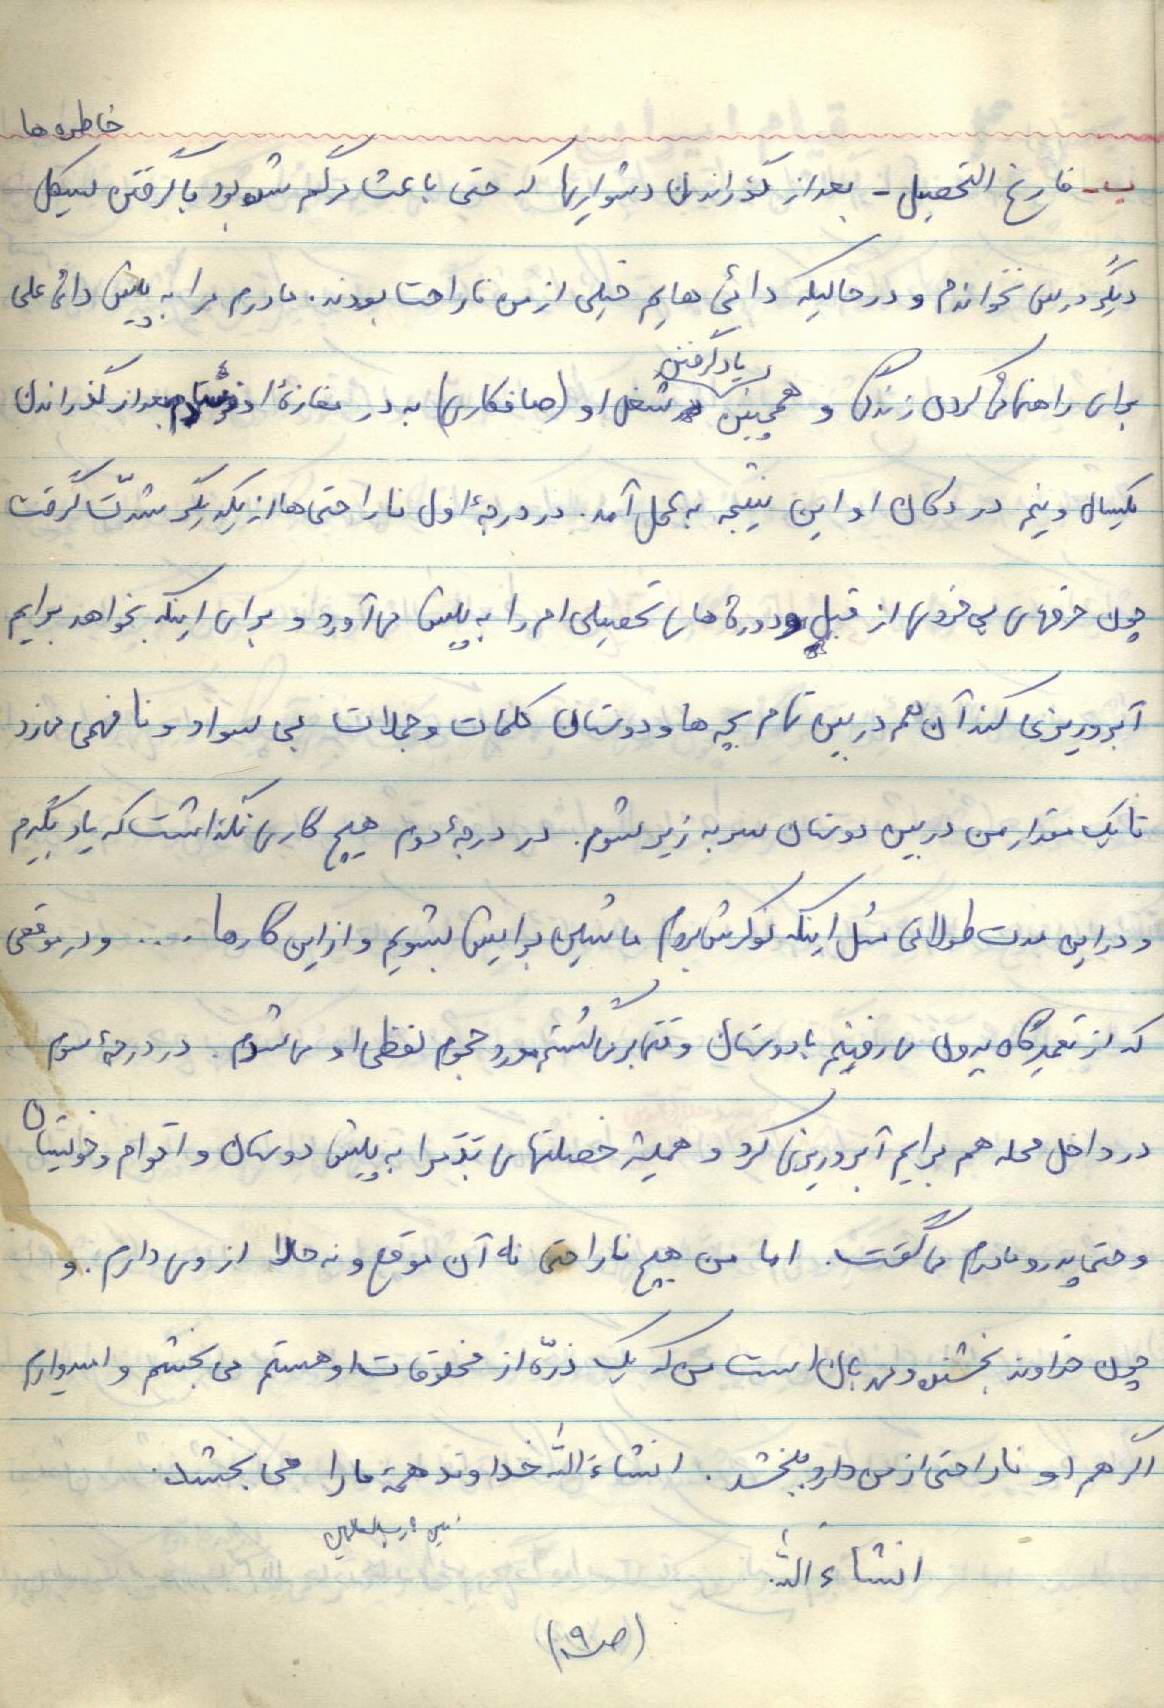 خاطره ها
ب - فارغ التحصیل - بعد از گذراندن دشواریها که حتی باعث مرگم شده بود با گرفتن سیکل
دیگر درس نخواندم و در حالیکه دائی هایم خیلی از من ناراحت بودند. مادرم مرا به پیش دائی علی
برای راهنمائی کردن زندگی و همچنین یاد گرفتن شغل او (صافکاری) به در مغازهٔ او فرستاد. بعد از گذراندن
یکسال و نیم در دکان او این نتیجه به عمل آمد. در درجهٔ اول ناراحتی ها از یکدیگر شدّت گرفت
چون حرفهای پی خودی از قبل و دوره های تحصیلی ام را به پیش می آورد و برای اینکه بخواهد برایم
آبروریزی کند آن هم در بین تمام بچه ها و دوستان کلمات و جملات بی سواد و نافهمی می زد
تا یک مقدار من در بین دوستان سر به زیر شوم. در درجهٔ دوم هیچ کاری نگذاشت که یاد بگیرم
و در این مدت طولانی مثل اینکه نوکرش بودم ماشین برایش بشویم و از این کارها .... و در موقعی
که از تعمیرگاه بیرون می رفتیم با دوستان وقتی برمی گشتم مورد هجوم لفظی او می شدم. در درجهٔ سوم
در داخل محله هم برایم آبروریزی کرد و همیشه خصلتهای بد مرا به پیش دوستان و اقوام و خویشان
و حتی پدر و مادرم می گفت. اما من هیچ ناراحتی نه آن موقع و نه حالا از وی دارم. و
چون خداوند بخشنده و مهربان است من که یک ذرّه از مخلوقات او هستم می بخشم و امیدوارم
اگر هم او ناراحتی از من دارد ببخشد. انشاءالله خداوند همهٔ ما را می بخشد.
انشاءالله
(ص۹)